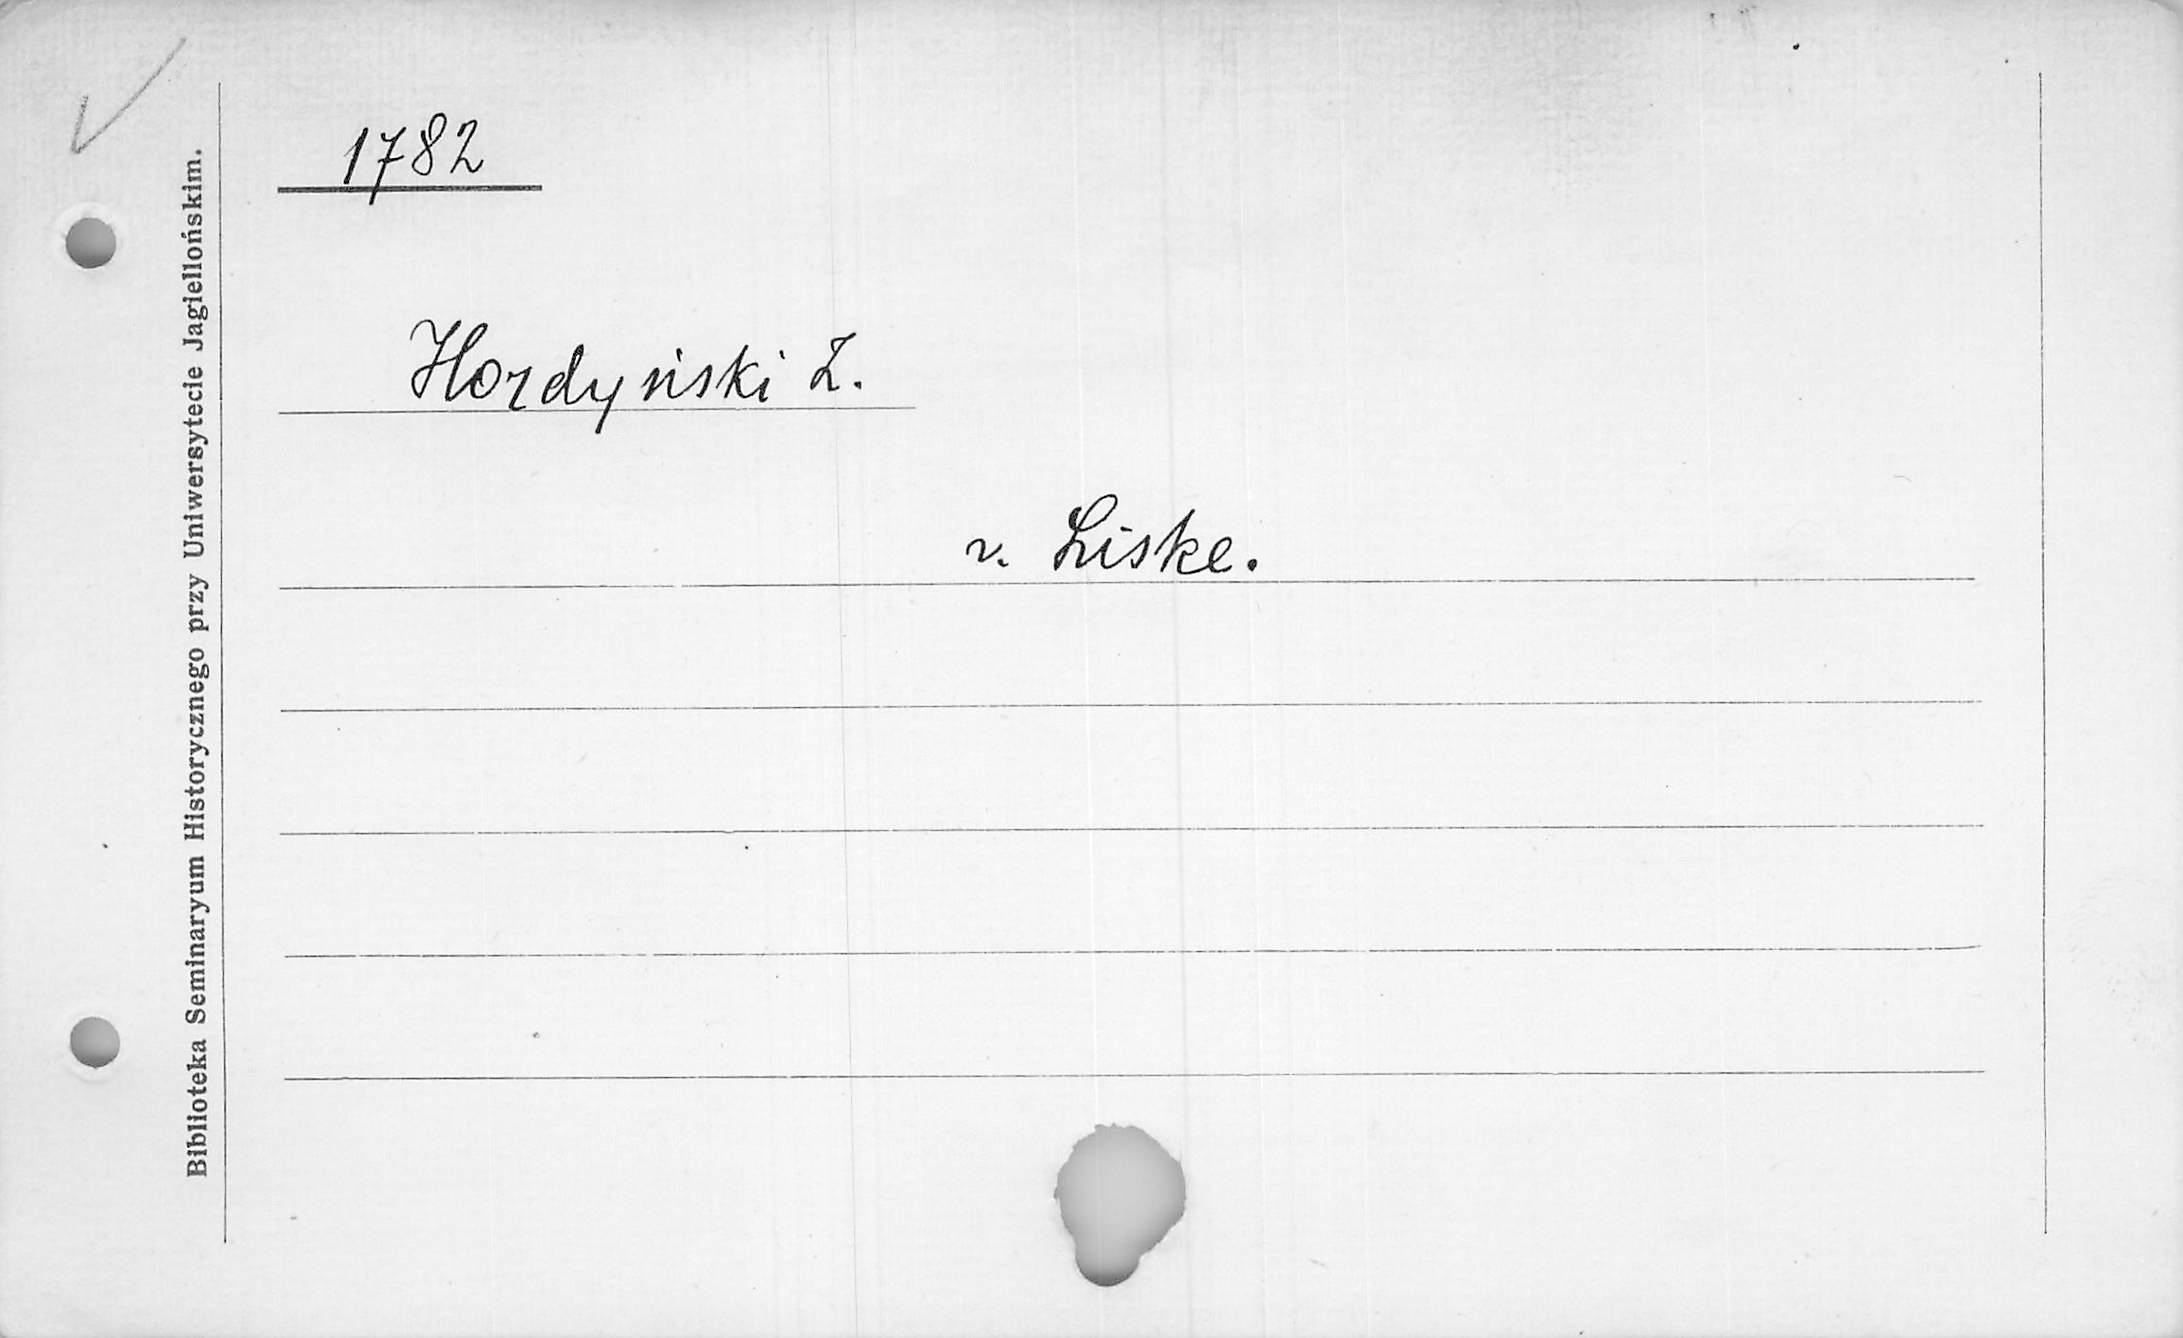 1782
Hordyński Z.
v. Liske.
Biblioteka Seminaryum Historycznego przy Uniwersytecie Jagiellońskim.